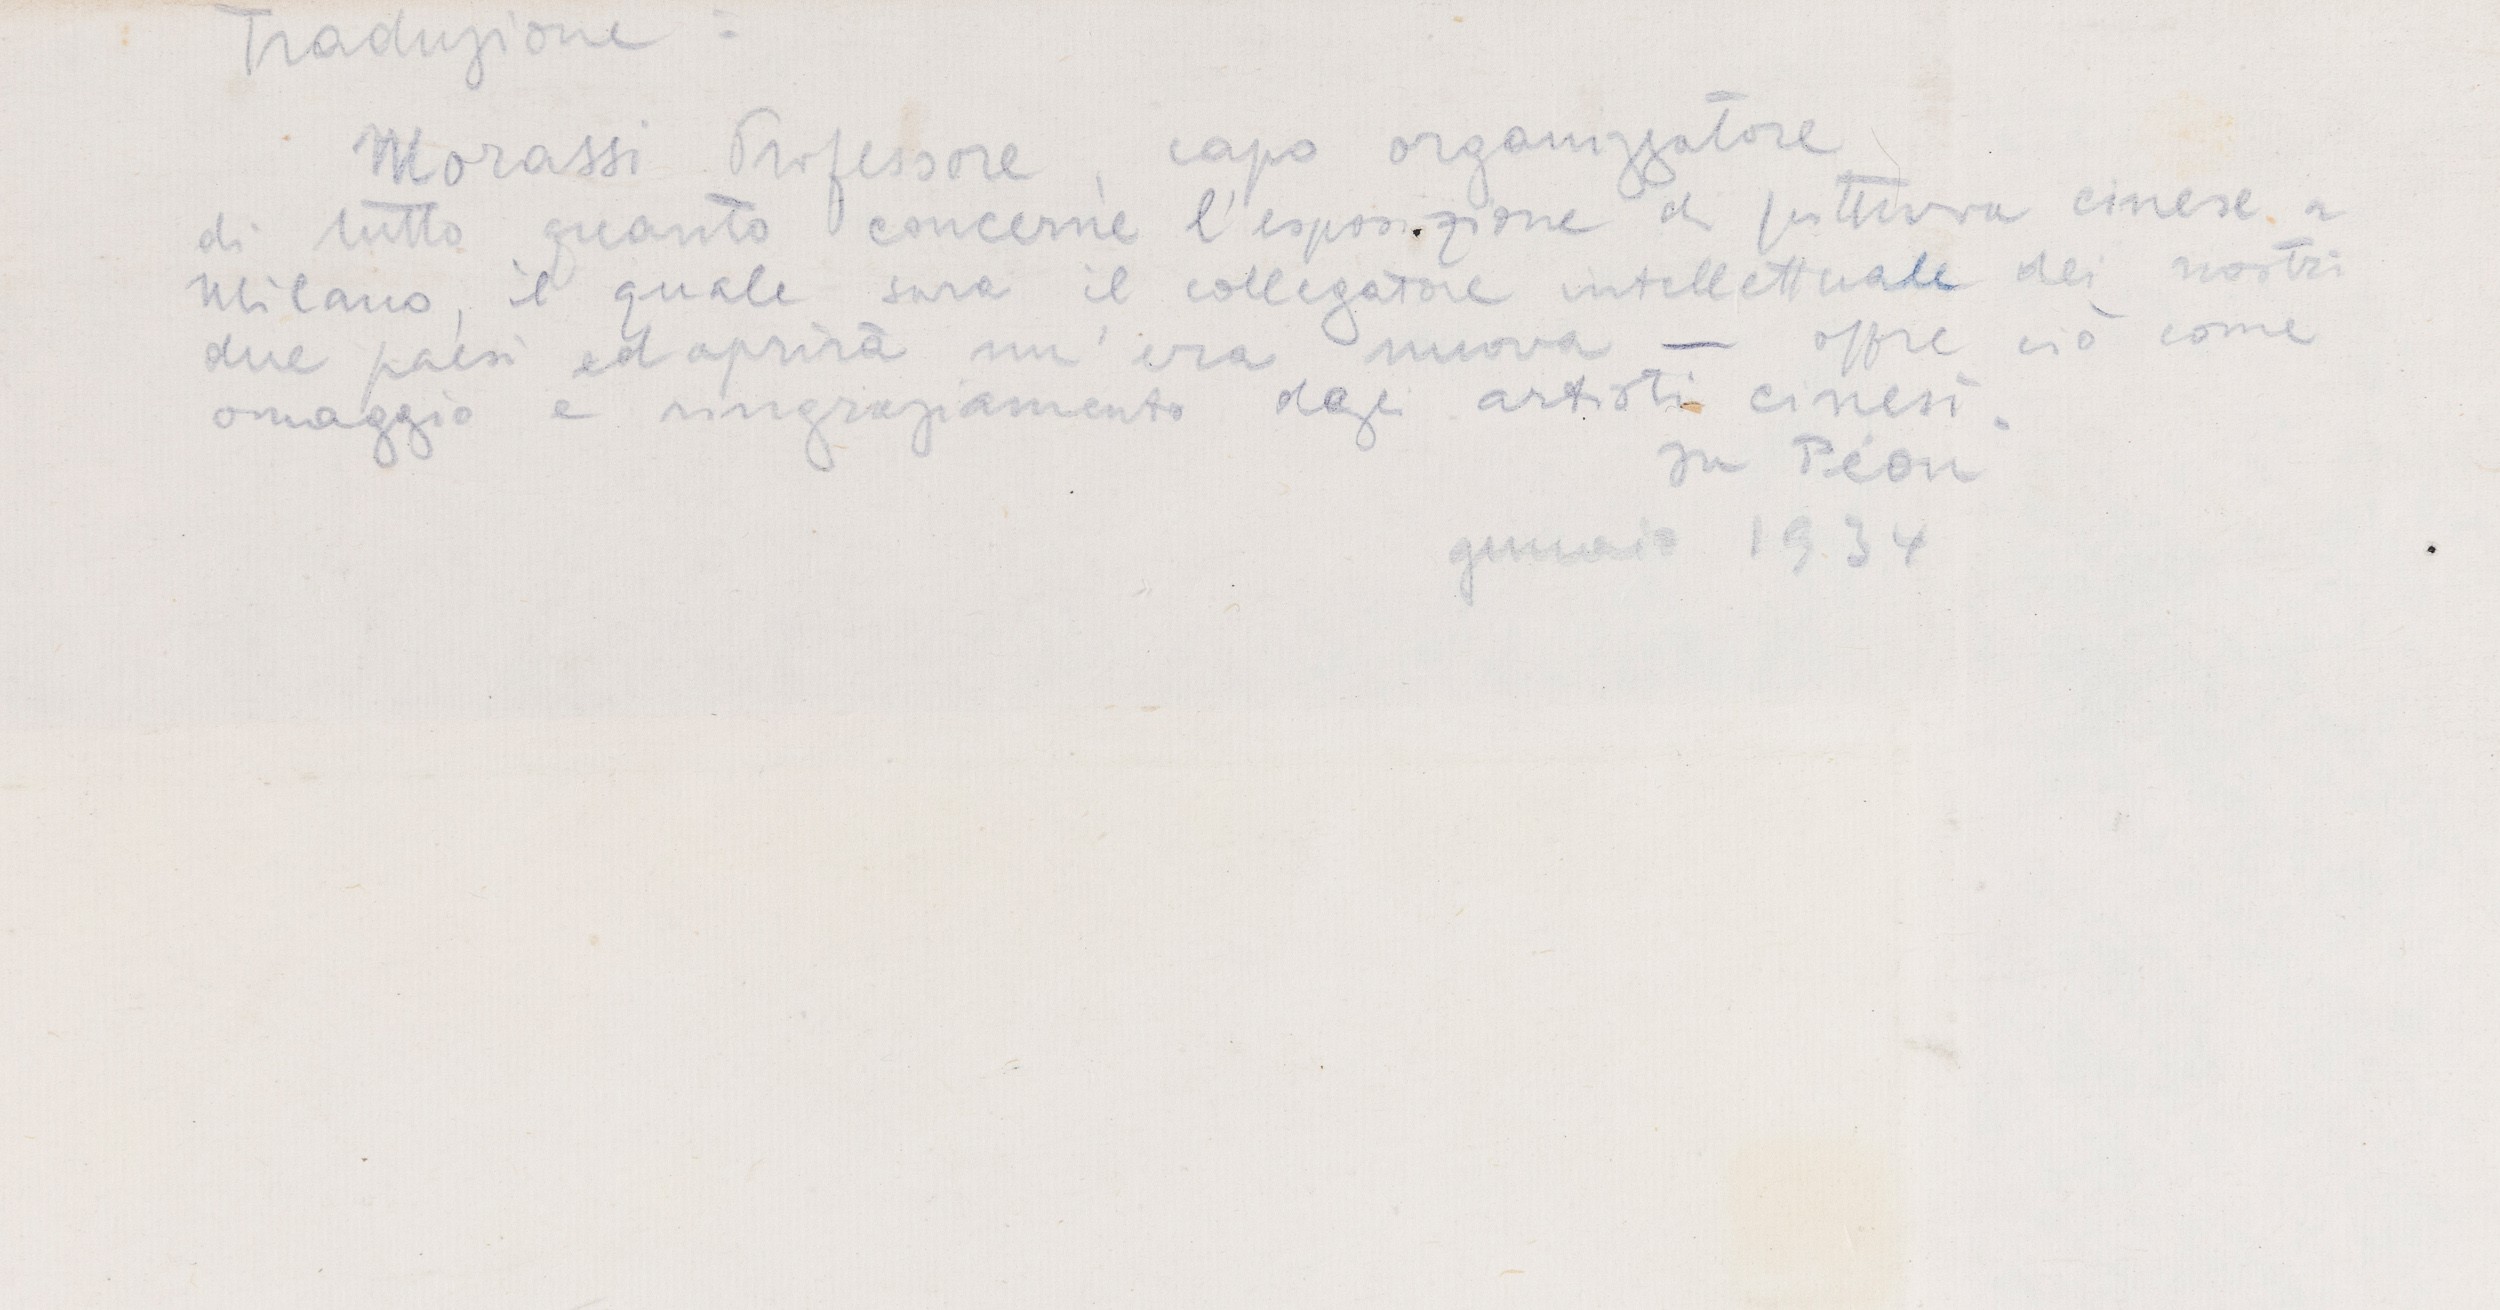 Traduzione :
Morassi Professore, capo organizzatore
di tutto quanto concerne l'esposizione di pittura cinese a
Milano, il quale sara il collegatore intellettuale dei nostri
due paesi ed aprirà un'era nuova — offre ciò come
omaggio e ringraziamento degli artisti cinesi.
Ju Péon
gennaio 1934